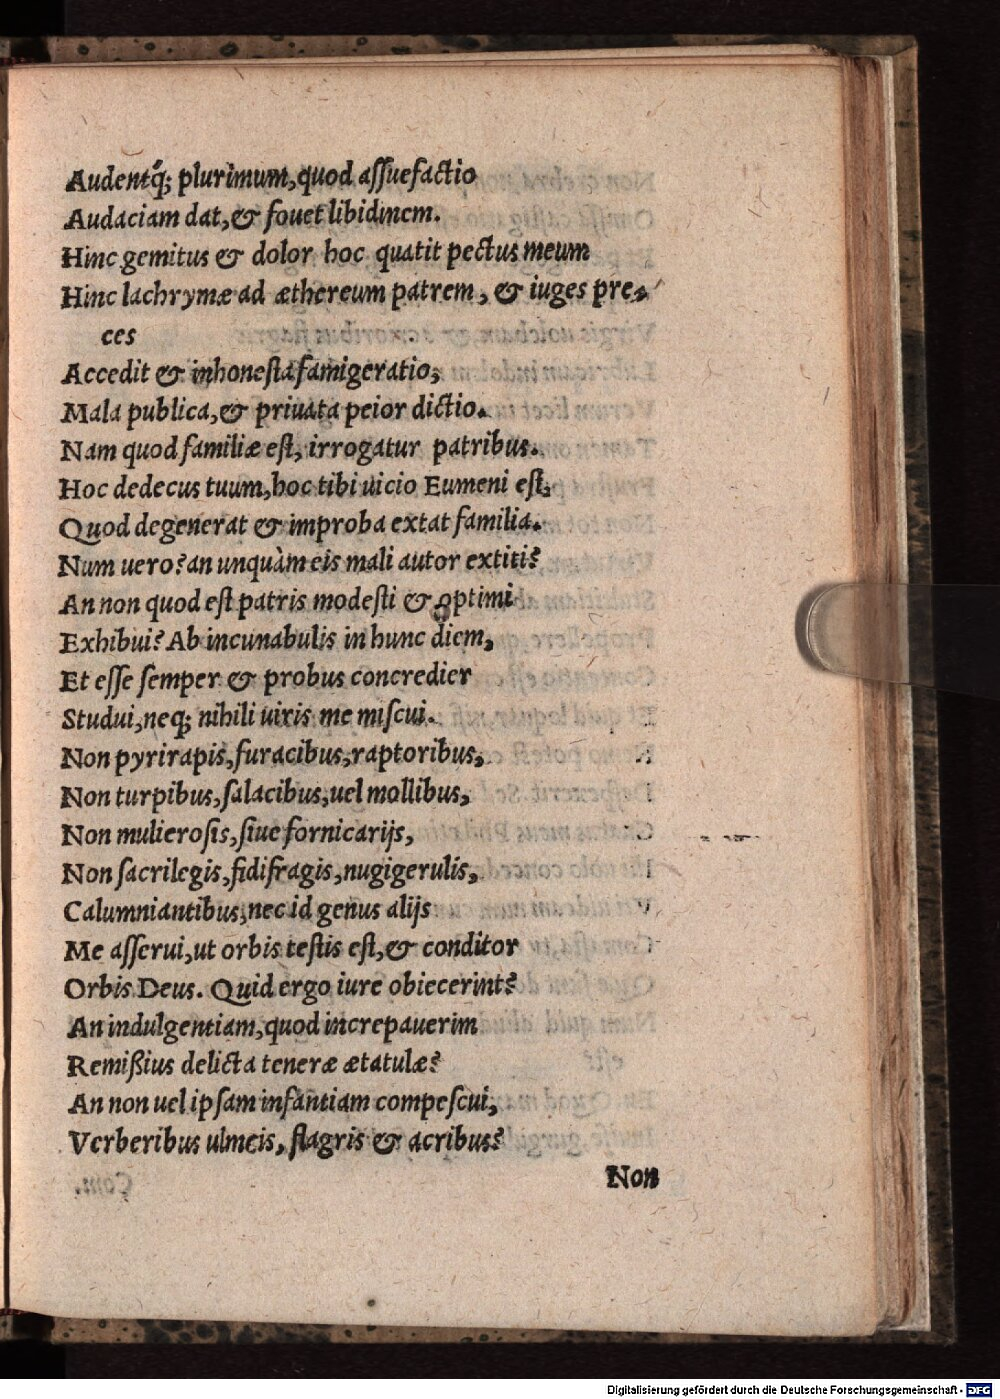 Audentq́; plurimum, quod aſſuefactio
Audaciam dat, & fouet libidinem.
Hinc gemitus & dolor hoc quatit pectus meum
Hinc lachrymæ ad æthereum patrem, & iuges pre-
ces
Accedit & inhoneſta famigeratio,
Mala publica, & priuata peior dictio.
Nam quod familiæ eſt, irrogatur patribus.
Hoc dedecus tuum, hoc tibi uicio Eumeni eſt,
Quod degenerat & improba extat familia.
Num uero? an unquàm eis mali autor extiti?
An non quod eſt patris modeſti & optimi
Exhibui? Ab incunabulis in hunc diem,
Et eſſe ſemper & probus concredier
Studui, neq; nihili uiris me miſcui.
Non pyrirapis, furacibus, raptoribus,
Non turpibus, ſalacibus, uel mollibus,
Non mulieroſis, ſiue fornicarijs,
Non ſacrilegis, fidifragis, nugigerulis,
Calumniantibus, nec id genus alijs
Me aſſerui, ut orbis teſtis eſt, & conditor
Orbis Deus. Quid ergo iure obiecerint?
An indulgentiam, quod increpauerim
Remißius delicta teneræ ætatulæ?
An non uel ipſam infantiam compeſcui,
Verberibus ulmeis, flagris & acribus?
Non
Digitalisierung gefördert durch die Deutsche Forschungsgemeinschaft - DFG